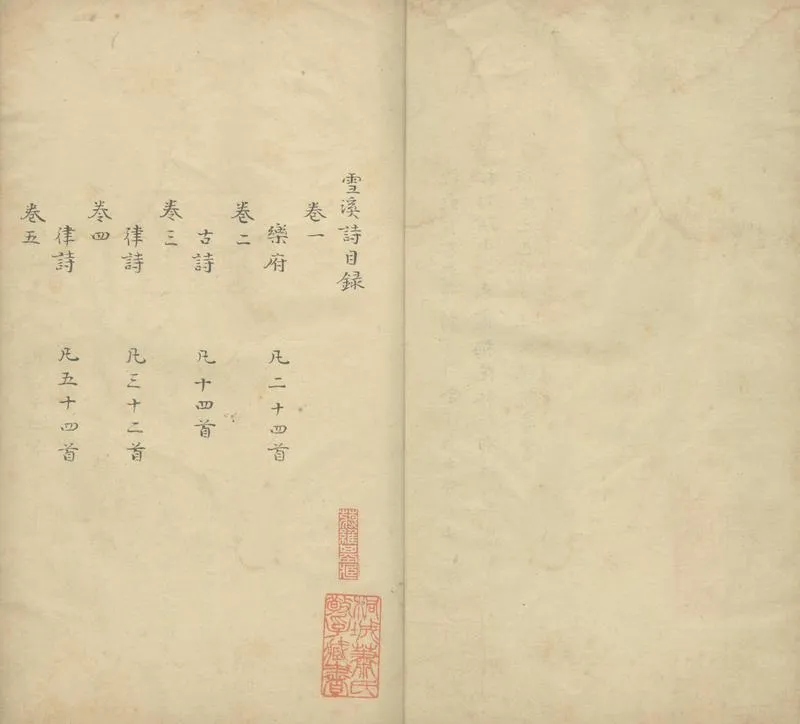 雪溪詩目録
卷一
樂府 凡二十四首
卷二
古詩 凡十四首
卷三
律詩 凡三十二首
卷四
律詩 凡五十四首
卷五
桐城蕭氏
敬孚藏書